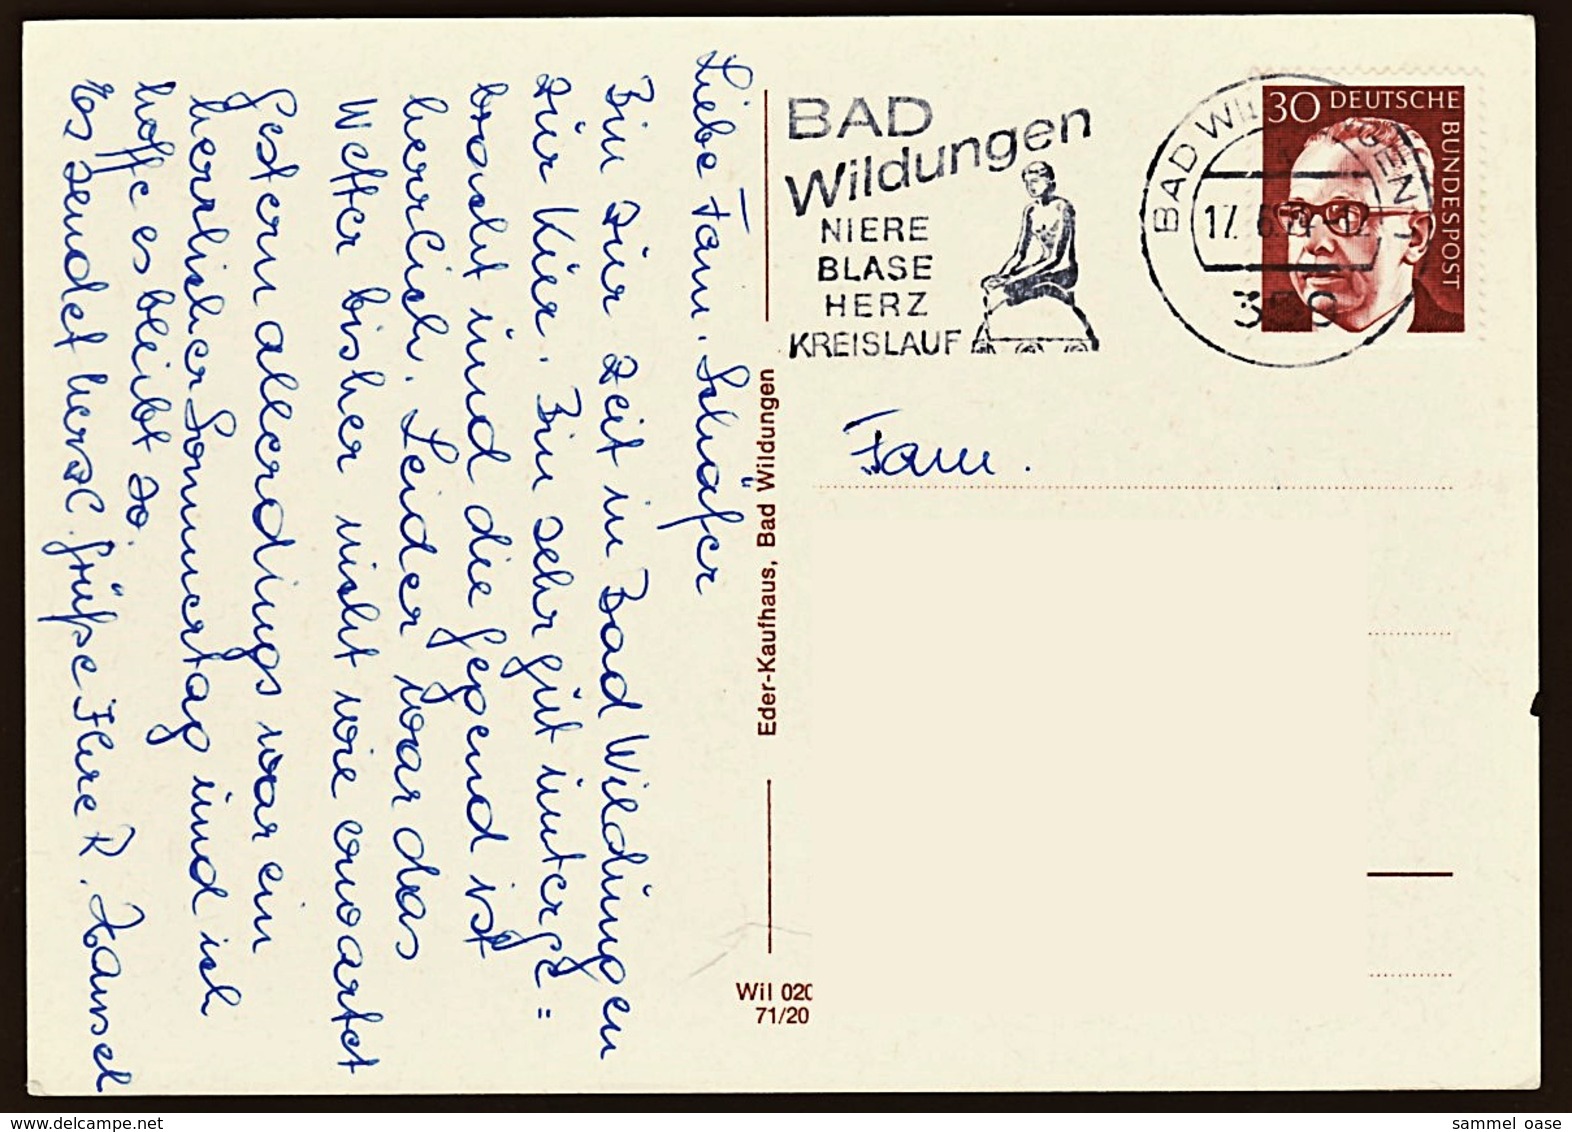 Liebe Fam. Schäfer
Bin zur Zeit in Bad Wildungen
zur Kur. Bin sehr gut unterge=
bracht und die Gegend ist
herrlich. Leider war das
Wetter bisher nicht wie erwartet
Gestern allerdings war ein
herrlicher Sommertag und ich
hoffe es bleibt so.
Es sendet herzl. Grüße Ihre R. Hansel
Eder-Kaufhaus, Bad Wildungen
Wil 020
71/20
BAD
Wildungen
NIERE
BLASE
HERZ
KREISLAUF
BAD WILDUNGEN 1
17. 6.
359
30 DEUTSCHE
BUNDESPOST
Fam.
sammel_oase